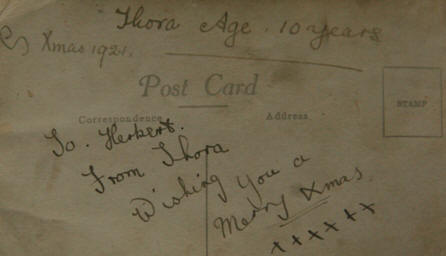 Thora Age. 10 years
Xmas 1921.
Post Card
Correspondence
Address
STAMP
To. Herbert.
From Thora
Wishing You a
Merry Xmas.
x x x x x x